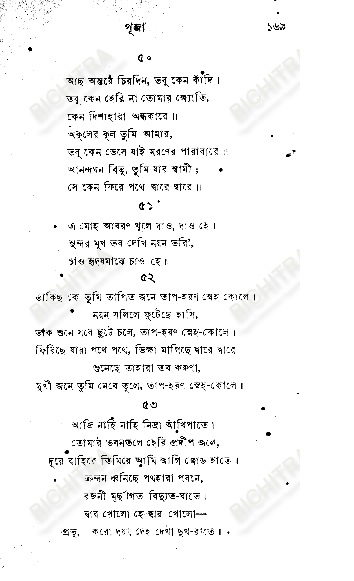 পূজা ১৬৯
৫০
আছ অন্তরে চিরদিন, তবু কেন কাঁদি।
তবু কেন হেরি না তোমার জ্যোতি,
কেন দিশাহারা অন্ধকারে॥
অকূলের কূল তুমি আমার,
তবু কেন ভেসে যাই মরণের পারাবারে॥
আনন্দঘন বিভু, তুমি যার স্বামী;
সে কেন ফিরে পথে দ্বারে দ্বারে॥
৫১
এ মোহ আবরণ খুলে দাও, দাও হে।
সুন্দর মুখ তব দেখি নয়ন ভরি',
চাও হৃদয়মাঝে চাও হে।
৫২
ডাকিছ কে তুমি তাপিত জনে তাপ-হরণ স্নেহ কোলে।
নয়ন সলিলে ফুটেছে হাসি,
ডাক শুনে সবে ছুটে চলে, তাপ-হরণ স্নেহ-কোলে।
ফিরিছে যারা পথে পথে, ভিক্ষা মাগিছে দ্বারে দ্বারে
শুনেছে তাহারা তব করুণা,
দুখী জনে তুমি নেবে তুলে, তাপ-হরণ স্নেহ-কোলে।
৫৩
আজি নাহি নাহি নিদ্রা আঁখিপাতে।
তোমার ভবনতলে হেরি প্রদীপ জ্বলে,
দূরে বাহিরে তিমিরে আমি জাগি জোড় হাতে।
ক্রন্দন ধ্বনিছে পথহারা পবনে,
রজনী মূর্ছাগত বিদ্যুত-ঘাতে।
দ্বার খোলো হে দ্বার খোলো—
প্রভু, করো দয়া, দেহ দেখা দুখ-রাতে।
BICHITRA
BICHITRA
BICHITRA
BICHITRA
BICHITRA
BICHITRA